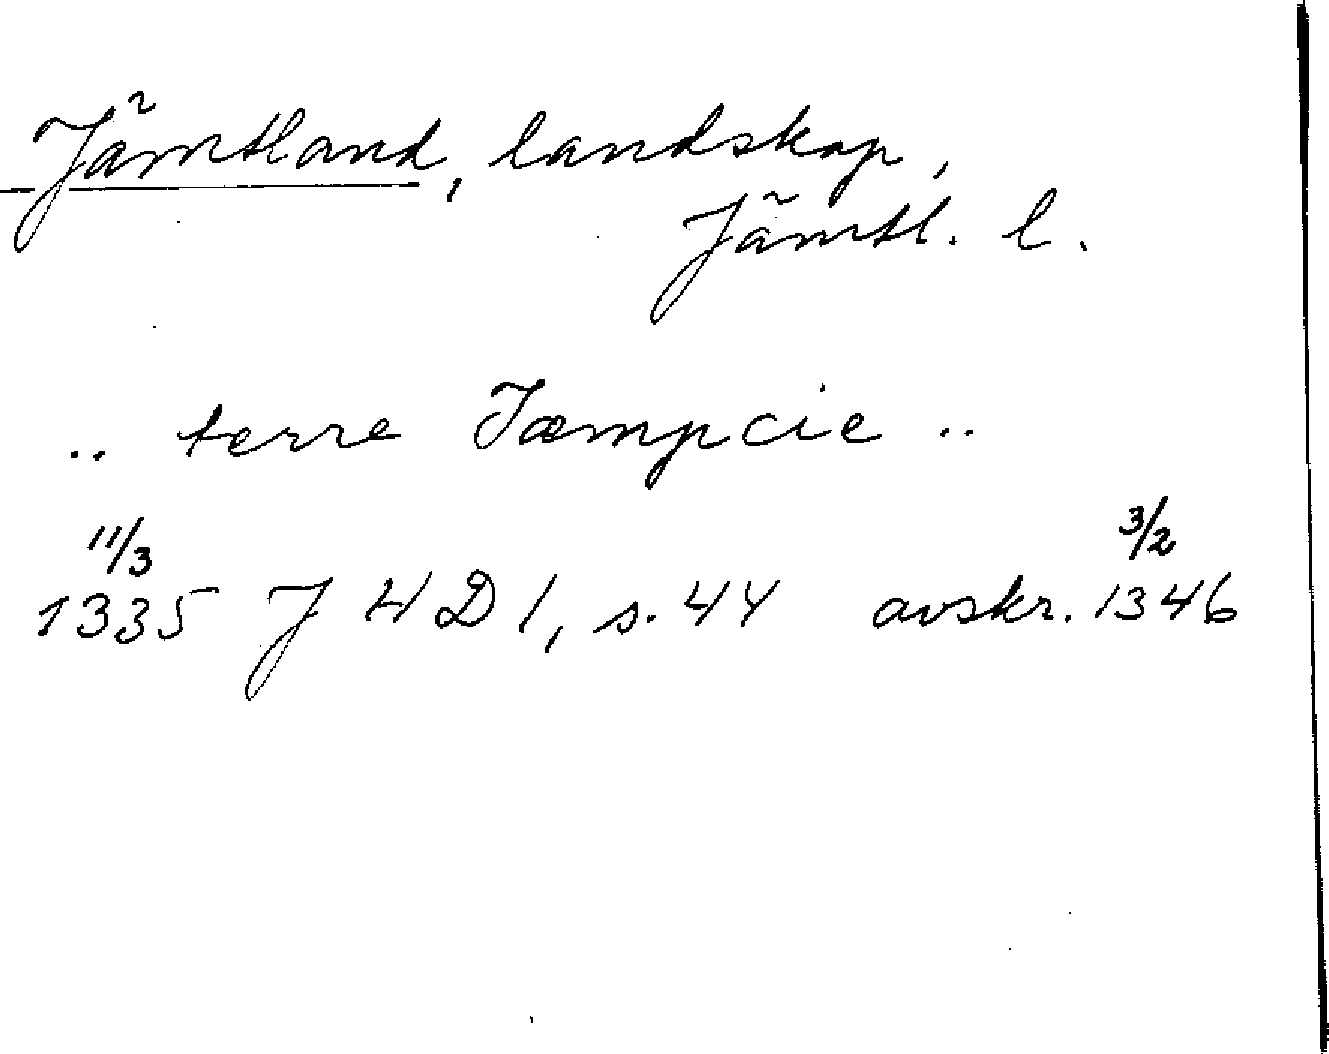 Jämtland, landskap,
Jämtl. l.
.. terre Jæmpcie ..
11/3 3/2
1335 J H D 1, s. 44 avskr. 1346